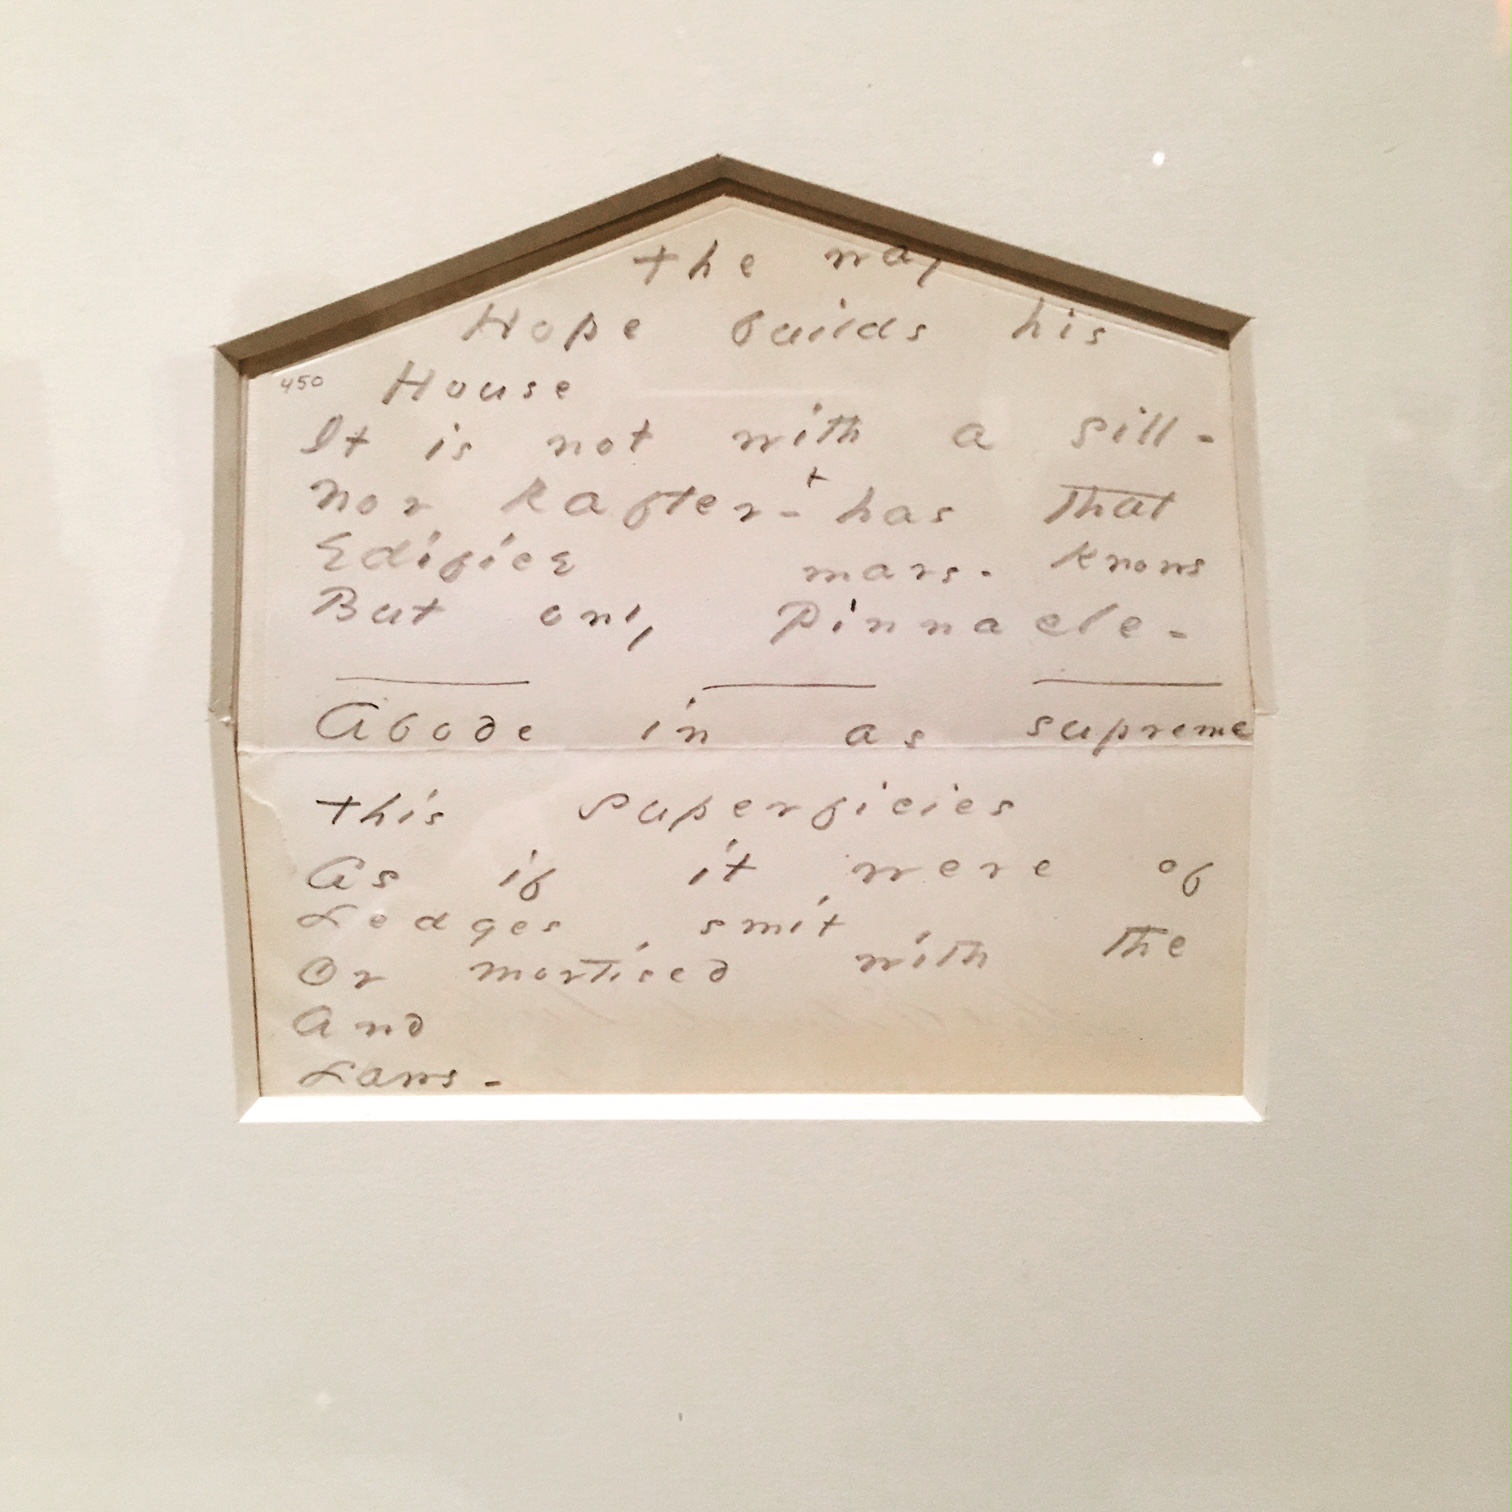 the way
Hope builds his
450 House
It is not with a sill -
nor Rafter - + has that
Edifice mars - knows
But only Pinnacle -
Abode in as supreme
this Superficies
As if it were of
Ledges smit
Or mortised with the
And
Laws -